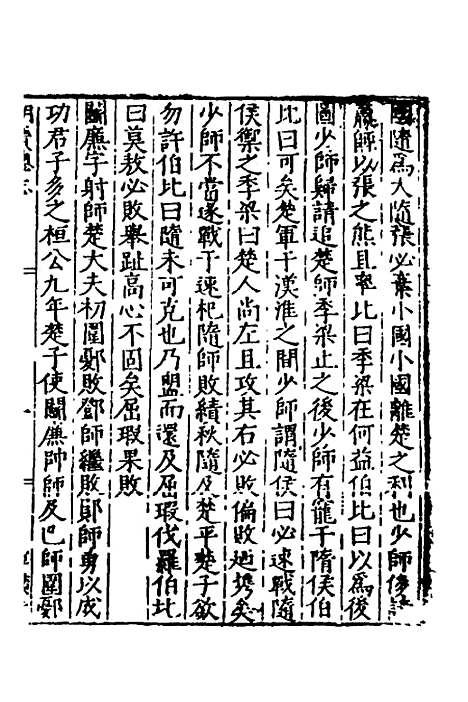 國隨為大隨張必棄小國小國離楚之利也少師侈請
羸師以張之熊且率比曰季梁在何益伯比曰以為後
圖少師歸請追楚師季梁止之後少師有寵于隋侯伯
比曰可矣楚軍于漢淮之間少師謂隨侯曰必速戰隨
侯禦之季梁曰楚人尚左且攻其右必敗偏敗廼擕矣
少師不當遂戰于速杞隨師敗績秋隨及楚平楚子欲
勿許伯比曰隨未可克也乃盟而還及屈瑕伐羅伯比
曰莫敖必敗舉趾高心不固矣屈瑕果敗
鬬廉字射師楚大夫初圍鄾敗鄧師繼敗鄖師勇以成
功君子多之桓公九年楚子使鬬廉帥師及巴師圍鄾